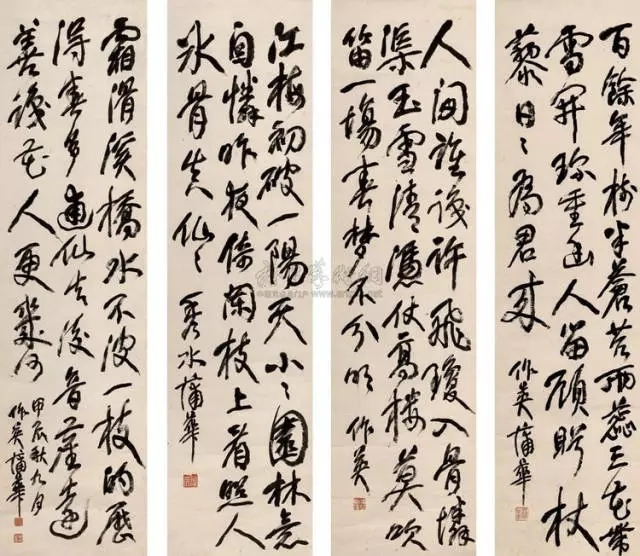 百餘年樹半蒼苔兩蕊三花帶
雪開珍重幽人留顧盼杖
藜日〻為君來 作英蒲華
人間誰識許飛瓊入骨憐
渠玉雪清憑仗高樓莫吹
笛一場春夢不分明 作英
江梅初破一陽天小〻園林意
自憐昨夜倚闌枝上看照人
冰骨 仙〻 秀水蒲華
霜滑溪橋水不波一枝的歷
得春多逋仙去後音塵遠
善識花人更幾何 甲辰秋九月
作英蒲華